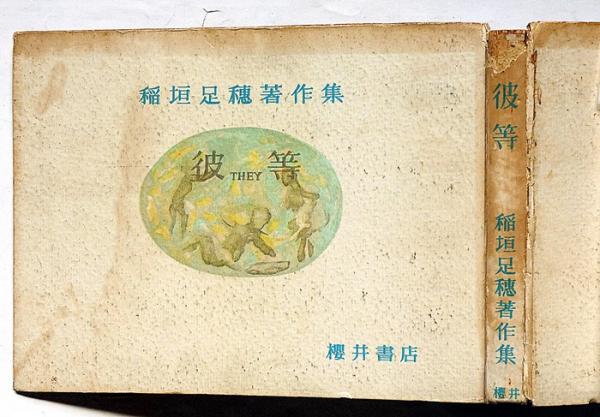 稲垣足穗著作集
彼 THEY 等
櫻井書店
彼等
稲垣足穗著作集
櫻井